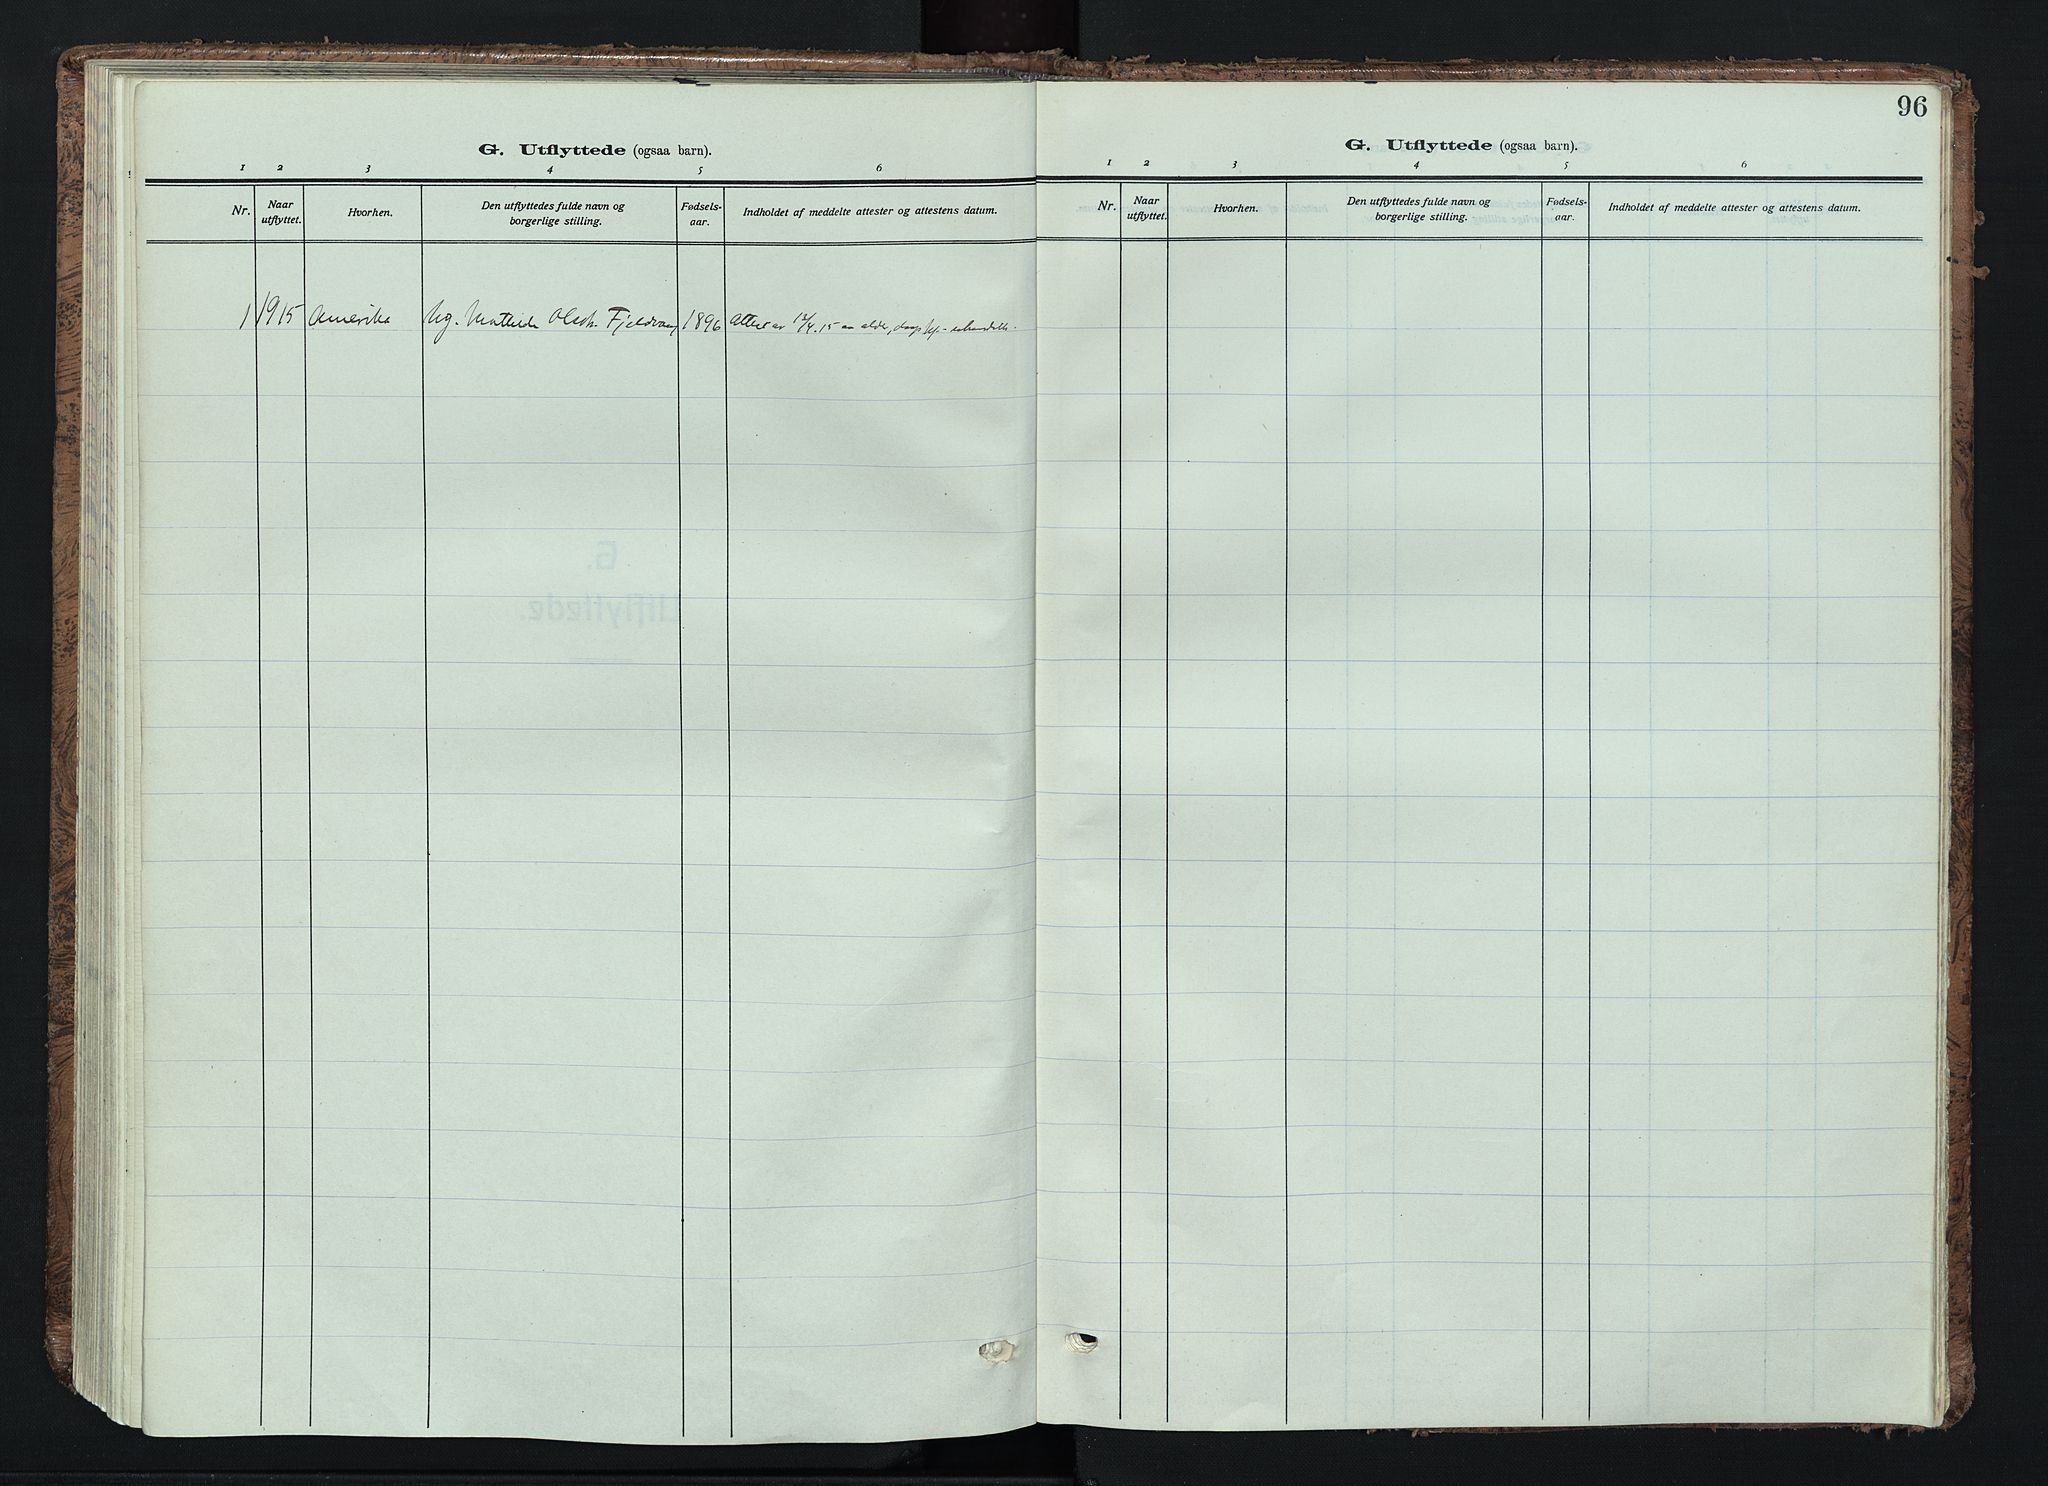 G. Utflyttede (ogsaa barn).
1 2 3 4 5 6
Nr. Naar utflyttet. Hvorhen. Den utflyttedes fulde navn og borgerlige stilling. Fødsels-aar. Indholdet af meddelte attester og attestens datum.
1 1915 Amerika Ug. Mathilde Olsdt. Fjeldvang 1896 Attest av 12/4.15 om alder, daap
96
G. Utflyttede (ogsaa barn).
1 2 3 4 5 6
Nr. Naar utflyttet. Hvorhen. Den utflyttedes fulde navn og borgerlige stilling. Fødsels-aar. Indholdet af meddelte attester og attestens datum.
G.
Utflyttede.